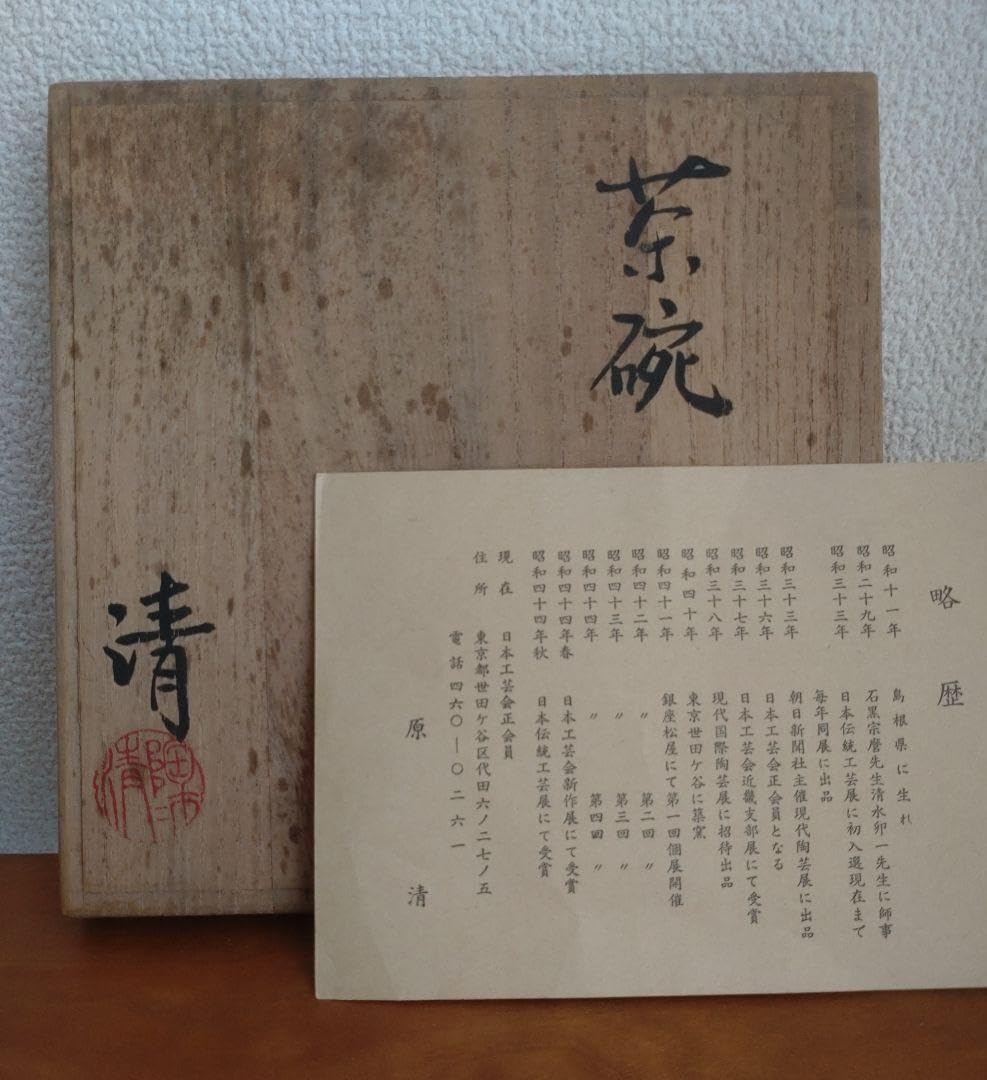 茶碗
清
略歴
昭和十一年 島根県に生れ
昭和二十九年 石黒宗麿先生清水卯一先生に師事
昭和三十三年 日本伝統工芸展に初入選現在まで
毎年同展に出品
昭和三十三年 朝日新聞社主催現代陶芸展に出品
昭和三十六年 日本工芸会正会員となる
昭和三十七年 日本工芸会近畿支部展にて受賞
昭和三十八年 現代国際陶芸展に招待出品
昭和四十年 東京世田ケ谷に築窯
昭和四十一年 銀座松屋にて第一回個展開催
昭和四十二年 〃 第二回 〃
昭和四十三年 〃 第三回 〃
昭和四十四年 〃 第四回 〃
昭和四十四年春 日本工芸会新作展にて受賞
昭和四十四年秋 日本伝統工芸展にて受賞
現在 日本工芸会正会員
住所 東京都世田ケ谷区代田六ノ二七ノ五
電話四六〇―〇二六一
原 清